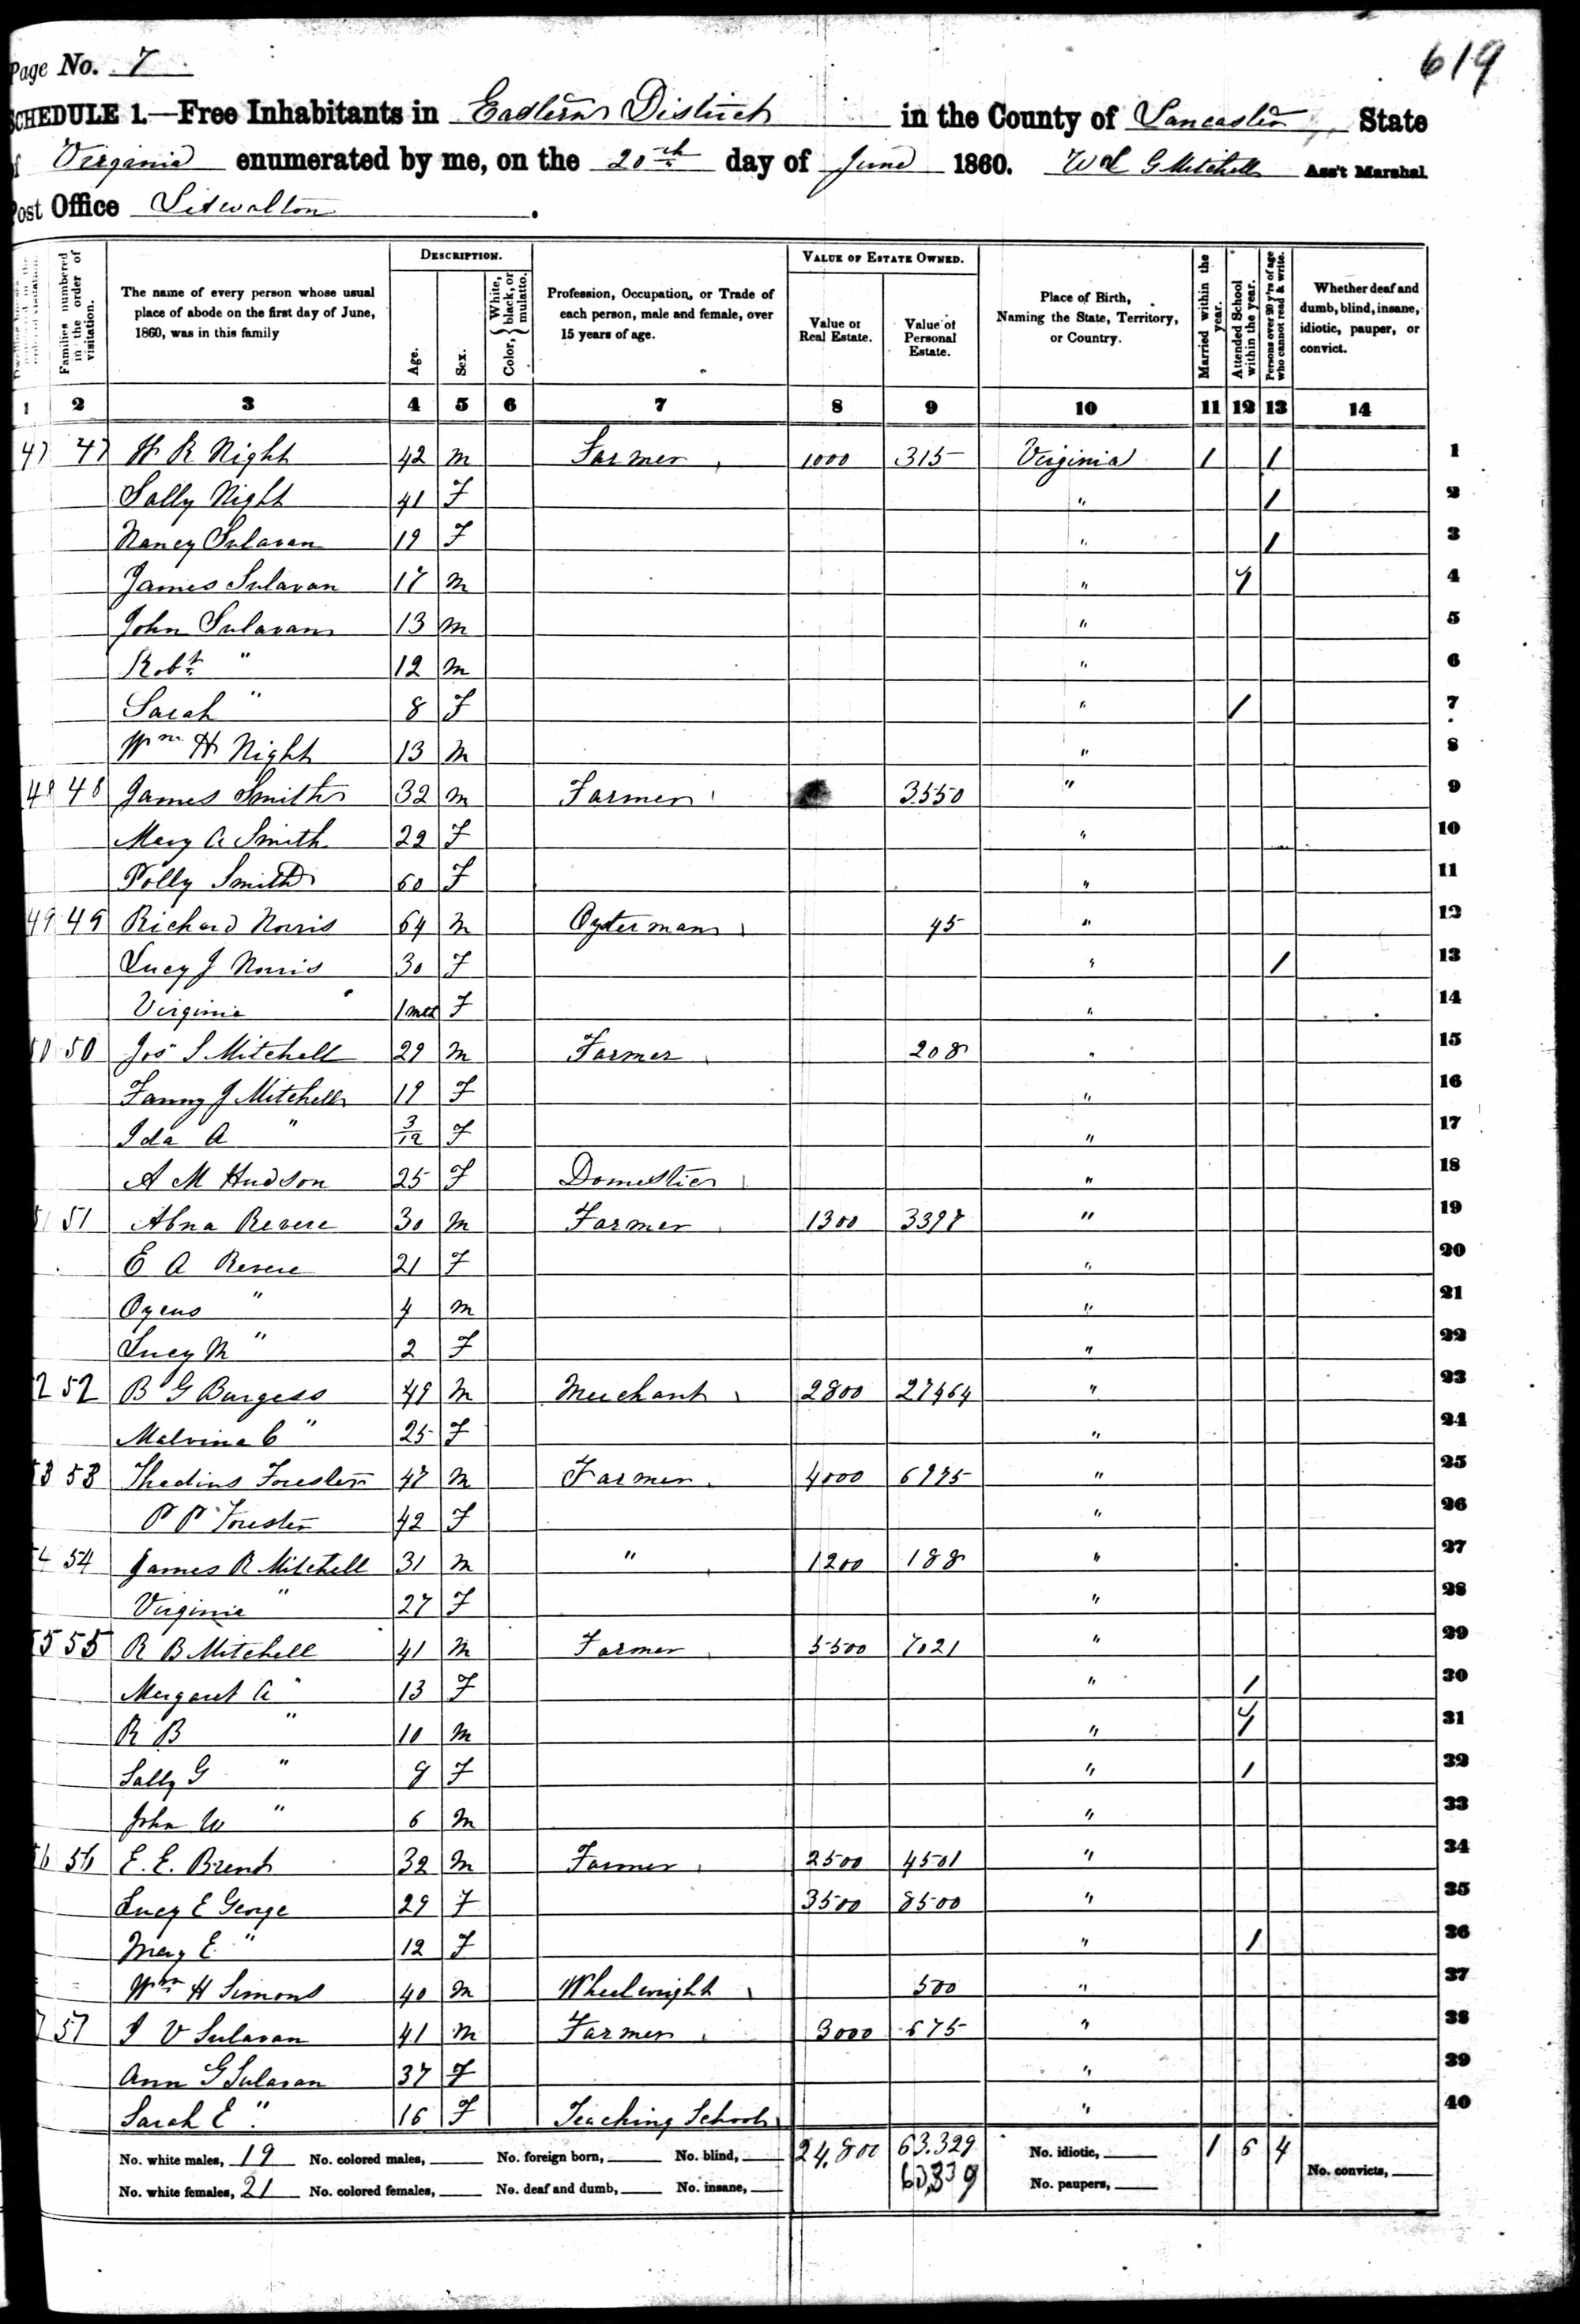 619
Page No. 7
SCHEDULE 1.—Free Inhabitants in Eastern District in the County of Lancaster State
of Virginia enumerated by me, on the 20th day of June 1860. Wm G Mitchell Ass't Marshal.
Post Office Litwalton.
Families numbered in the order of visitation.
The name of every person whose usual place of abode on the first day of June, 1860, was in this family
DESCRIPTION.
Age. Sex. Color, } White, black, or mulatto.
Profession, Occupation, or Trade of each person, male and female, over 15 years of age.
VALUE OF ESTATE OWNED.
Value of Real Estate. Value of Personal Estate.
Place of Birth, Naming the State, Territory, or Country.
Married within the year. Attended School within the year. Persons over 20 y'rs of age who cannot read & write.
Whether deaf and dumb, blind, insane, idiotic, pauper, or convict.
1 2 3 4 5 6 7 8 9 10 11 12 13 14
47 47 H R Night 42 m Farmer 1000 315 Virginia 1 1 1
Sally Night 41 F " 1 2
Nancy Sulavan 19 F " 1 3
James Sulavan 17 m " 4
John Sulavan 13 m " 5
Robt " 12 m " 6
Sarah " 8 F " 1 7
Wm H Night 13 m " 8
48 48 James Smith 32 m Farmer 3550 " 9
Mary A Smith 22 F " 10
Polly Smith 60 F " 11
49 49 Richard Norris 64 m Oysterman 45 " 12
Lucy J Norris 30 F " 1 13
Virginia " 1 mo F " 14
50 50 Jos S Mitchell 29 m Farmer 208 " 15
Fanny J Mitchell 19 F " 16
Ida A " 3/12 F " 17
A M Hudson 25 F Domestic " 18
51 51 Abna Revere 30 m Farmer 1300 3397 " 19
E A Revere 21 F " 20
Oyeus " 4 m " 21
Lucy M " 2 F " 22
52 52 B G Burgess 49 m Merchant 2800 27464 " 23
Malvina C " 25 F " 24
53 53 Thadius Forester 47 m Farmer 4000 6975 " 25
P P Forester 42 F " 26
54 54 James R Mitchell 31 m " 1200 188 " 27
Virginia " 27 F " 28
55 55 R B Mitchell 41 m Farmer 5500 7021 " 29
Margaret A " 13 F " 1 30
R B " 10 m " 31
Sally G " 8 F " 1 32
John W " 6 m " 33
56 56 E. E. Brent 32 m Farmer 2500 4501 " 34
Lucy E George 29 F 3500 8500 " 35
Mary E " 12 F " 1 36
Wm H Simons 40 m Wheelwright 500 " 37
57 J V Sulavan 41 m Farmer 3000 675 " 38
Ann G Sulavan 37 F " 39
Sarah E " 16 F Teaching School " 40
No. white males, 19 No. colored males, No. foreign born, No. blind, 24,800 63.329 No. idiotic, 1 6 4 No. convicts,
No. white females, 21 No. colored females, No. deaf and dumb, No. insane, 63,339 No. paupers,